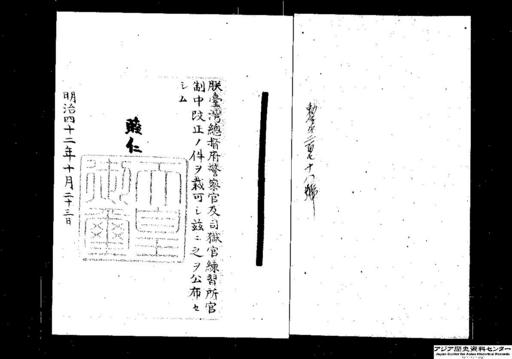 勅令第二百七十八號
朕臺灣總督府警察官及司獄官練習所官
制中改正ノ件ヲ裁可シ茲ニ之ヲ公布セ
シム
睦仁
天皇
御璽
明治四十二年十月二十三日
アジア歴史資料センター
Japan Center for Asian Historical Records